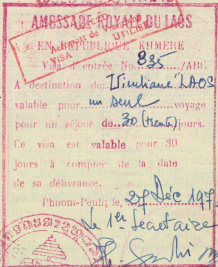 AMBASSADE ROYALE DU LAOS
EN REPUBLIQUE KHMERE
VISA UTILISE
Visa d'entrée No 835 /ARL
A destination de: Vientiane LAOS
valable pour un seul voyage
pour un séjour de 30 (trente) jours.
Ce visa est valable pour 30
jours à compter de la date
de sa délivrance.
Phnom-Penh; le 29 Déc 197
Le 1er Secrétaire